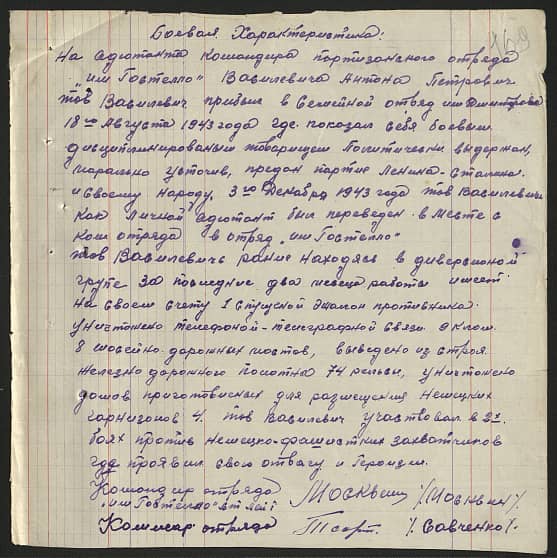 169
Боевая Характеристика:
На адютанта командира портизанского отряда
"им Гостелло" Василевича Антона Петровича
тов Василевич прибыл в Семейной отряд им Дмитрова
18го Августа 1943 года где показал себя боевым
дисциплинированым товарищем Политически выдержан,
марально устоичив, предан партие Ленина-Сталина
и своему народу, 3го Декабря 1943 года тов Василевич
как личной адютант был переведен в месте с
ком отряда в отряд "им Гостелло"
тов Василевич ранее находясь в диверсионой
групе за последние два месеца работы имеет
на своем счету 1 спущеной эшалон противника.
уничтожено телефоной-телеграфной связи 9 клом.
8 шосейно дорожных мостов, выведено из строя
железно дорожного полотна 74 рельсы, уничтожено
домов приготовленых для размещения немецких
горнизонов 4. тов Василевич участвовал в 2х.
боях против немецко-фашистких захватчиков
где проявил свою отвагу и Героизм.
Командир отряда Москвин /Москвин/
"им Гостелло"
Комисар отряда /Савченко/